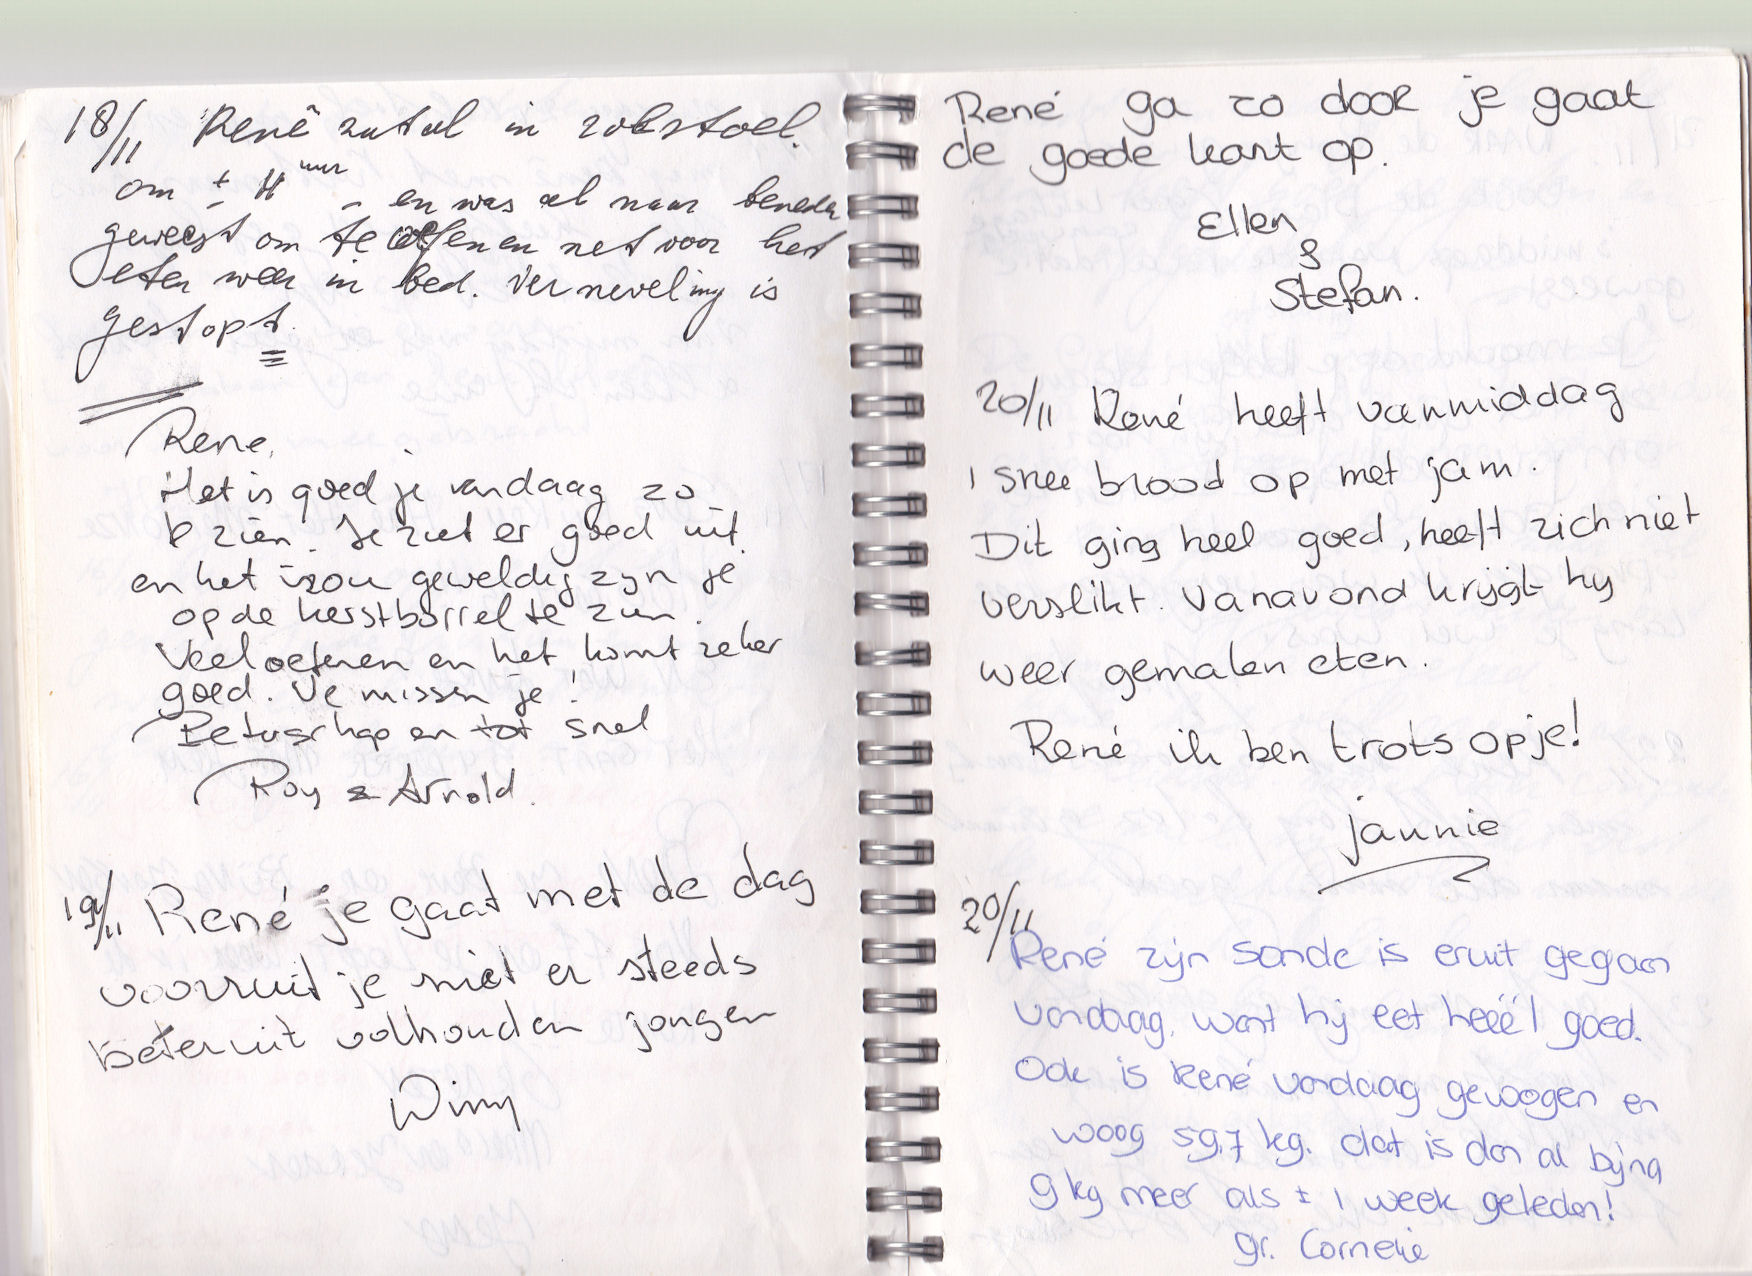 18/11 René zat al in rolstoel.
om ± 11 uur - en was al naar beneden
geweest om te oefenen en net voor het
eten weer in bed. Verneveling is
gestopt.
Rene,
Het is goed je vandaag zo
te zien. Je ziet er goed uit.
en het zou geweldig zijn je
op de kerstborrel te zien.
Veel oefenen en het komt zeker
goed. We missen je!
Beterschap en tot snel
Roy & Arnold.
19/11 René je gaat met de dag
vooruit je ziet er steeds
beter uit volhouden jongen
Wimy
René ga zo door je gaat
de goede kant op.
Ellen
&
Stefan.
20/11 René heeft vanmiddag
1 snee brood op met jam.
Dit ging heel goed, heeft zich niet
verslikt. Vanavond krijgt hy
weer gemalen eten.
René ik ben trots op je!
jannie
20/11
René zijn sonde is eruit gegaan
vandaag, want hij eet heéél goed.
Ook is René vandaag gewogen en
woog 59,7 kg. dat is dan al bijna
9 kg meer als ± 1 week geleden!
gr. Cornelie